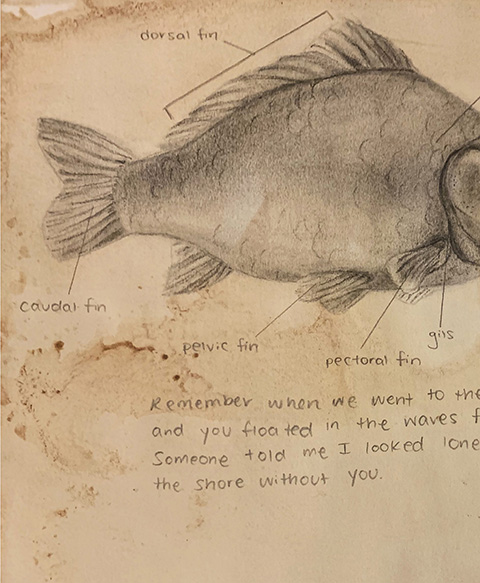 dorsal fin
caudal fin
pelvic fin
pectoral fin
gils
Remember when we went to the
and you floated in the waves f
Someone told me I looked lone
the shore without you.